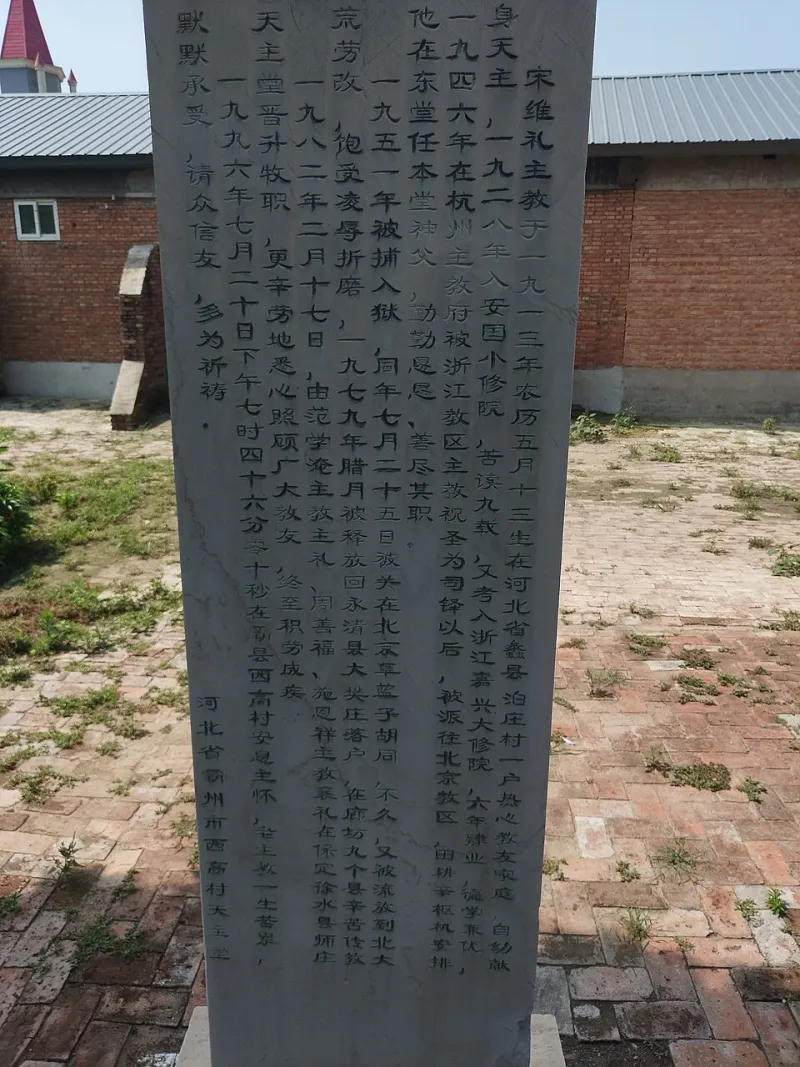 宋维礼主教于一九一三年农历五月十三生在河北省蠡县泊庄村一户热心教友家庭，自幼献
身天主，一九二八年入安国小修院，苦读九载，又考入浙江嘉兴大修院，六年肄业，德学兼优，
一九四六年在杭州主教府被浙江教区主教祝圣为司铎以后，被派往北京教区，田耕莘枢机安排
他在东堂任本堂神父，勤勤恳恳、善尽其职。
一九五一年被捕入狱，同年七月二十五日被关在北京草蓝子胡同，不久，又被流放到北大
荒劳改，饱受凌辱折磨，一九七九年腊月被释放回永清县大樊庄落户，在廊坊九个县辛苦传教
一九八二年二月十七日，由范学淹主教主礼、周善福、施恩祥主教襄礼在保定徐水县师庄
天主堂晋升牧职，更辛劳地悉心照顾广大教友，终至积劳成疾
一九九六年七月二十日下午七时四十六分零十秒在霸县西高村安息主怀，主教一生苦累，
默默承受，请众信友，多为祈祷．
河北省霸州市西高村天主堂